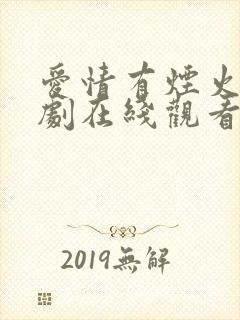 愛情有煙火
劇在綫觀看
2019無解